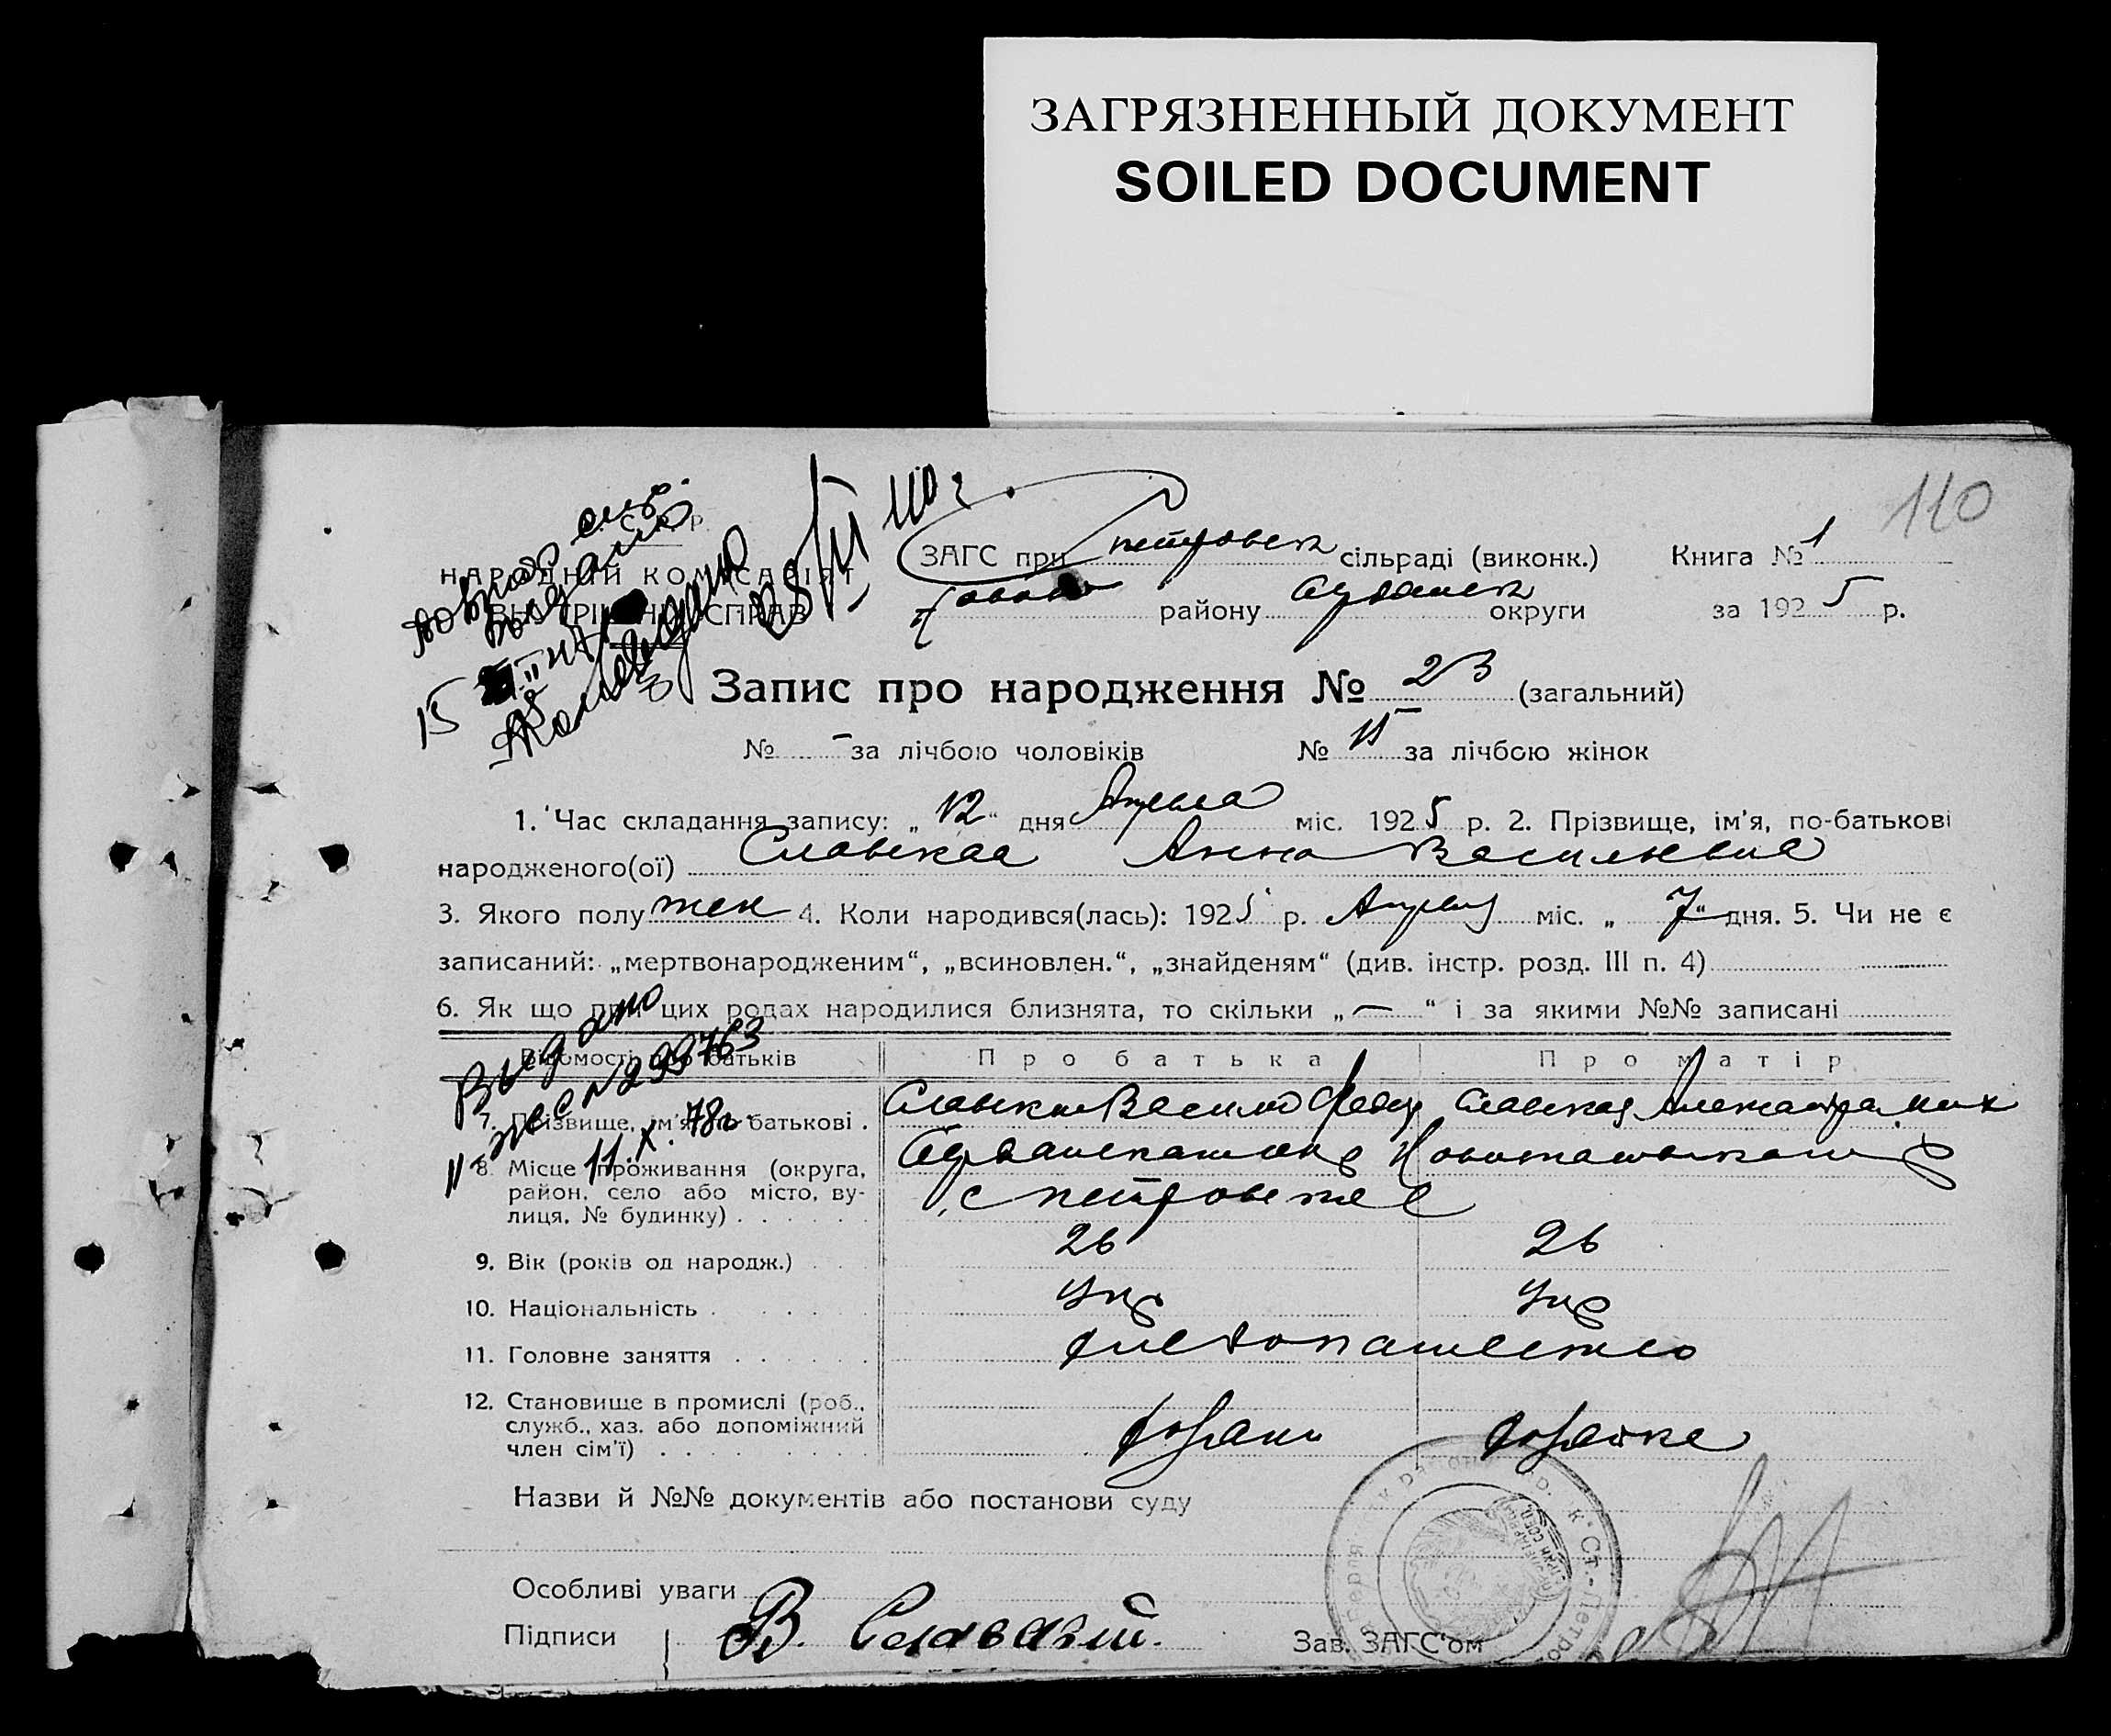 ЗАГРЯЗНЕННЫЙ ДОКУМЕНТ
SOILED DOCUMENT
110
НАРОДНІЙ КОМІСАРІЯТ
СПРАВ
ЗАГС при Петровск сільраді (виконк.) Книга № 1
району округи за 1925 р.
Запис про народження № 23 (загальний)
№ – за лічбою чоловіків № 11 за лічбою жінок
1. Час складання запису: „12“ дня Апреля міс. 1925 р. 2. Прізвище, ім'я, по-батькові
народженого(ої) Славская Анна Васильевна
3. Якого полу жен 4. Коли народився(лась): 1925 р. Апреля міс. „7“ дня. 5. Чи не є
записаний: „мертвонародженим“, „всиновлен.“, „знайденям“ (див. інстр. розд. III п. 4)
6. Як що при цих родах народилися близнята, то скільки „—“ і за якими №№ записані
Выдано
№ 299763
11.X.78г
Відомості про батьків Про батька Про матір
7. Прізвище, ім'я по батькові . Славский Василий Федор Славская Александра Мих
8. Місце проживання (округа, район, село або місто, вулиця, № будинку)
с Петровка
9. Вік (років од народж.) 26 26
10. Національність . Укр Укр
11. Головне заняття хлебопашество
12. Становище в промислі (роб., служб., хаз. або допоміжний член сім'ї)
Назви й №№ документів або постанови суду
Особливі уваги
Підписи В. Славский. Зав. ЗАГС'ом